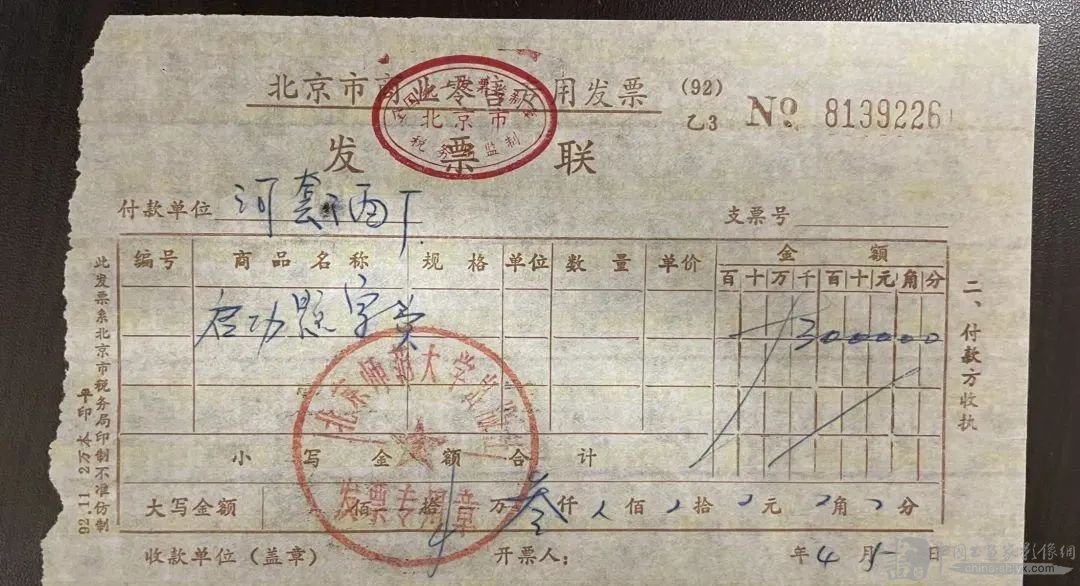 北京市商业零售专用发票 (92) 乙3 № 8139226
发票联
北京市
税务局监制
付款单位 河套酒厂 支票号
编号 商品名称 规格 单位 数量 单价 金额
百十万千百十元角分
启功题字费 300000
小写金额合计
大写金额 佰 拾 万 叁仟 佰 拾 元 角 分
收款单位(盖章) 开票人: 年 4 月 日
北京师范大学
发票专用章
二、付款方收执
此发票系北京市税务局印制不准仿制
92.11
china-shyx.com